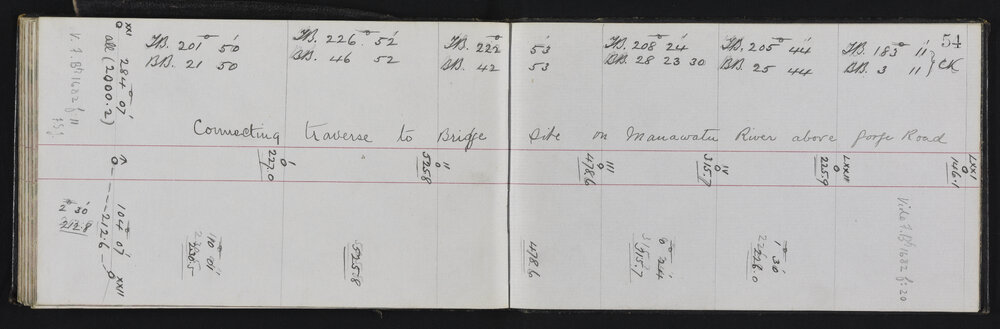 54
V. F. Bk 1682 f: 11
XXI
284° 07'
all (2000.2)
F.B. 201° 50'
B.B. 21 50
F.B. 226° 52'
B.B. 46 52
F.B. 222° 53'
B.B. 42 53
F.B. 208° 24'
B.B. 28 23 30
F.B. 205° 44'
B.B. 25 44
F.B. 183° 11'
B.B. 3 11
CK
Connecting traverse to Bridge Site on Manawatu River above Gorge Road
I
227.0
II
525.8
III
478.6
IV
315.7
LXXII
225.9
LXXI
146.1
104° 07'
212.6
XXII
2° 30'
212.8
10° 01'
230.5
525.8
478.6
6° 24'
315.7
1° 30'
226.0
Vide F. Bk 1682 f: 20